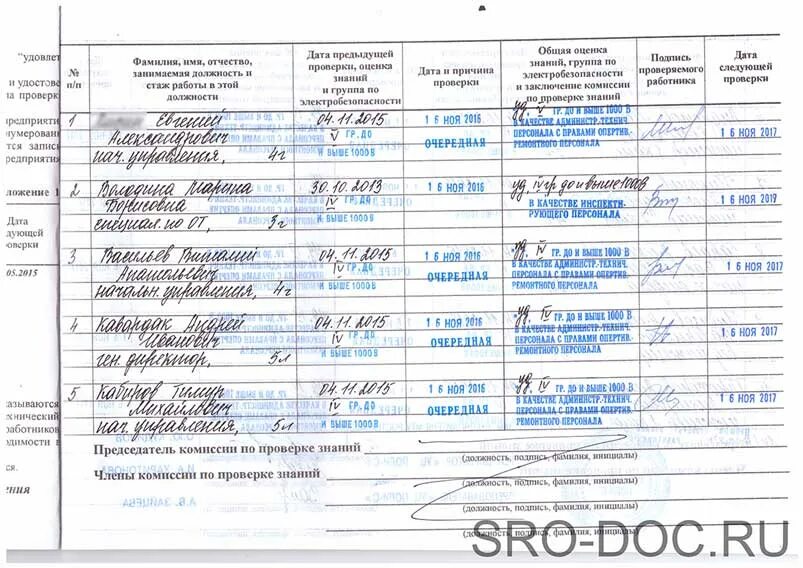 "удовлет
и удостове
ла проверк
предприяти
нумерован
тся запис
редприятия
ложение 1
Дата
дующей
оверки
.05.2015
азываются
хнический
работников
одимости в
ся.
ЕНИЯ
№ п/п
Фамилия, имя, отчество, занимаемая должность и стаж работы в этой должности
Дата предыдущей проверки, оценка знаний и группа по электробезопасности
Дата и причина проверки
Общая оценка знаний, группа по электробезопасности и заключение комиссии по проверке знаний
Подпись проверяемого работника
Дата следующей проверки
1
Евгений
Александрович
нач. управления, 4г
04.11.2015
IV ГР. ДО
И ВЫШЕ 1000 В
16 НОЯ 2016
ОЧЕРЕДНАЯ
уд. ГР. ДО И ВЫШЕ 1000 В
В КАЧЕСТВЕ АДМИНИСТР.-ТЕХНИЧ.
ПЕРСОНАЛА С ПРАВАМИ ОПЕРТИВ.
РЕМОНТНОГО ПЕРСОНАЛА
16 НОЯ 2017
2
Володина Марина
Борисовна
специал. по ОТ, 3г
30.10.2013
IV ГР. ДО
И ВЫШЕ 1000 В
16 НОЯ 2016
уд. IV гр до и выше 1000В
В КАЧЕСТВЕ ИНСПЕКТИ-
РУЮЩЕГО ПЕРСОНАЛА
16 НОЯ 2017
3
Васильев Виталий
Анатольевич
начальн. управления, 4г
04.11.2015
IV ГР. ДО
И ВЫШЕ 1000 В
16 НОЯ 2016
ОЧЕРЕДНАЯ
уд. IV ГР. ДО И ВЫШЕ 1000 В
В КАЧЕСТВЕ АДМИНИСТР.-ТЕХНИЧ.
ПЕРСОНАЛА С ПРАВАМИ ОПЕРТИВ.
РЕМОНТНОГО ПЕРСОНАЛА
16 НОЯ 2017
4
Кавардак Андрей
Иванович
ген. директор, 5л
04.11.2015
IV ГР. ДО
И ВЫШЕ 1000 В
16 НОЯ 2016
ОЧЕРЕДНАЯ
уд. IV ГР. ДО И ВЫШЕ 1000 В
В КАЧЕСТВЕ АДМИНИСТР.-ТЕХНИЧ.
ПЕРСОНАЛА С ПРАВАМИ ОПЕРТИВ.
РЕМОНТНОГО ПЕРСОНАЛА
16 НОЯ 2017
5
Кабиров Тимур
Михайлович
нач. управления, 5л
04.11.2015
IV ГР. ДО
И ВЫШЕ 1000 В
16 НОЯ 2016
ОЧЕРЕДНАЯ
уд. IV ГР. ДО И ВЫШЕ 1000 В
В КАЧЕСТВЕ АДМИНИСТР.-ТЕХНИЧ.
ПЕРСОНАЛА С ПРАВАМИ ОПЕРТИВ.
РЕМОНТНОГО ПЕРСОНАЛА
16 НОЯ 2017
Председатель комиссии по проверке знаний
(должность, подпись, фамилия, инициалы)
Члены комиссии по проверке знаний
(должность, подпись, фамилия, инициалы)
(должность, подпись, фамилия, инициалы)
(должность, подпись, фамилия, инициалы)
SRO-DOC.RU